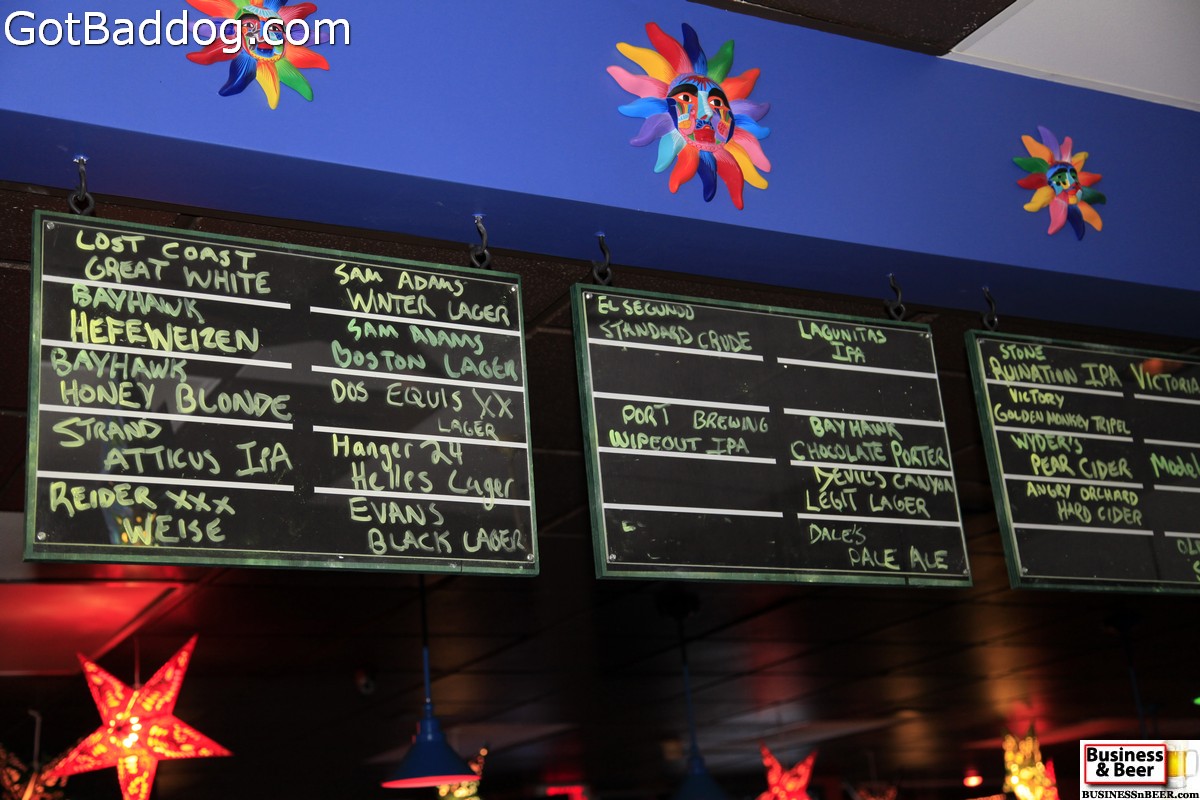 GotBaddog.com
LOST COAST
GREAT WHITE
BAYHAWK
HEFEWEIZEN
BAYHAWK
HONEY BLONDE
STRAND
ATTICUS IPA
REIDER XXX
WEISE
SAM ADAMS
WINTER LAGER
SAM ADAMS
BOSTON LAGER
DOS EQUIS XX
LAGER
Hanger 24
Helles Lager
EVANS
BLACK LAGER
EL SEGUNDO
STANDARD CRUDE
PORT BREWING
WIPEOUT IPA
LAGUNITAS
IPA
BAYHAWK
CHOCOLATE PORTER
DEVIL'S CANYON
LEGIT LAGER
DALE'S
PALE ALE
STONE
RUINATION IPA
VICTORY
GOLDEN MONKEY TRIPEL
WYDER'S
PEAR CIDER
ANGRY ORCHARD
HARD CIDER
Business
& Beer
BUSINESSnBEER.com